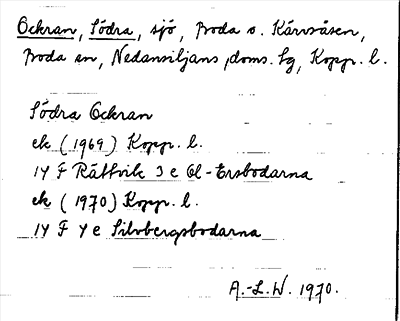 Ockran, Södra, sjö, Boda o. Kärvsåsen,
Boda sn, Nedansiljans doms. lg, Kopp. l.
Södra Ockran
ek (1969) Kopp. l.
14 F Rättvik 3 e Ol-Ersbodarna
ek (1970) Kopp. l.
14 F 4 e Silvbergsbodarna
A.-L.W. 1970.